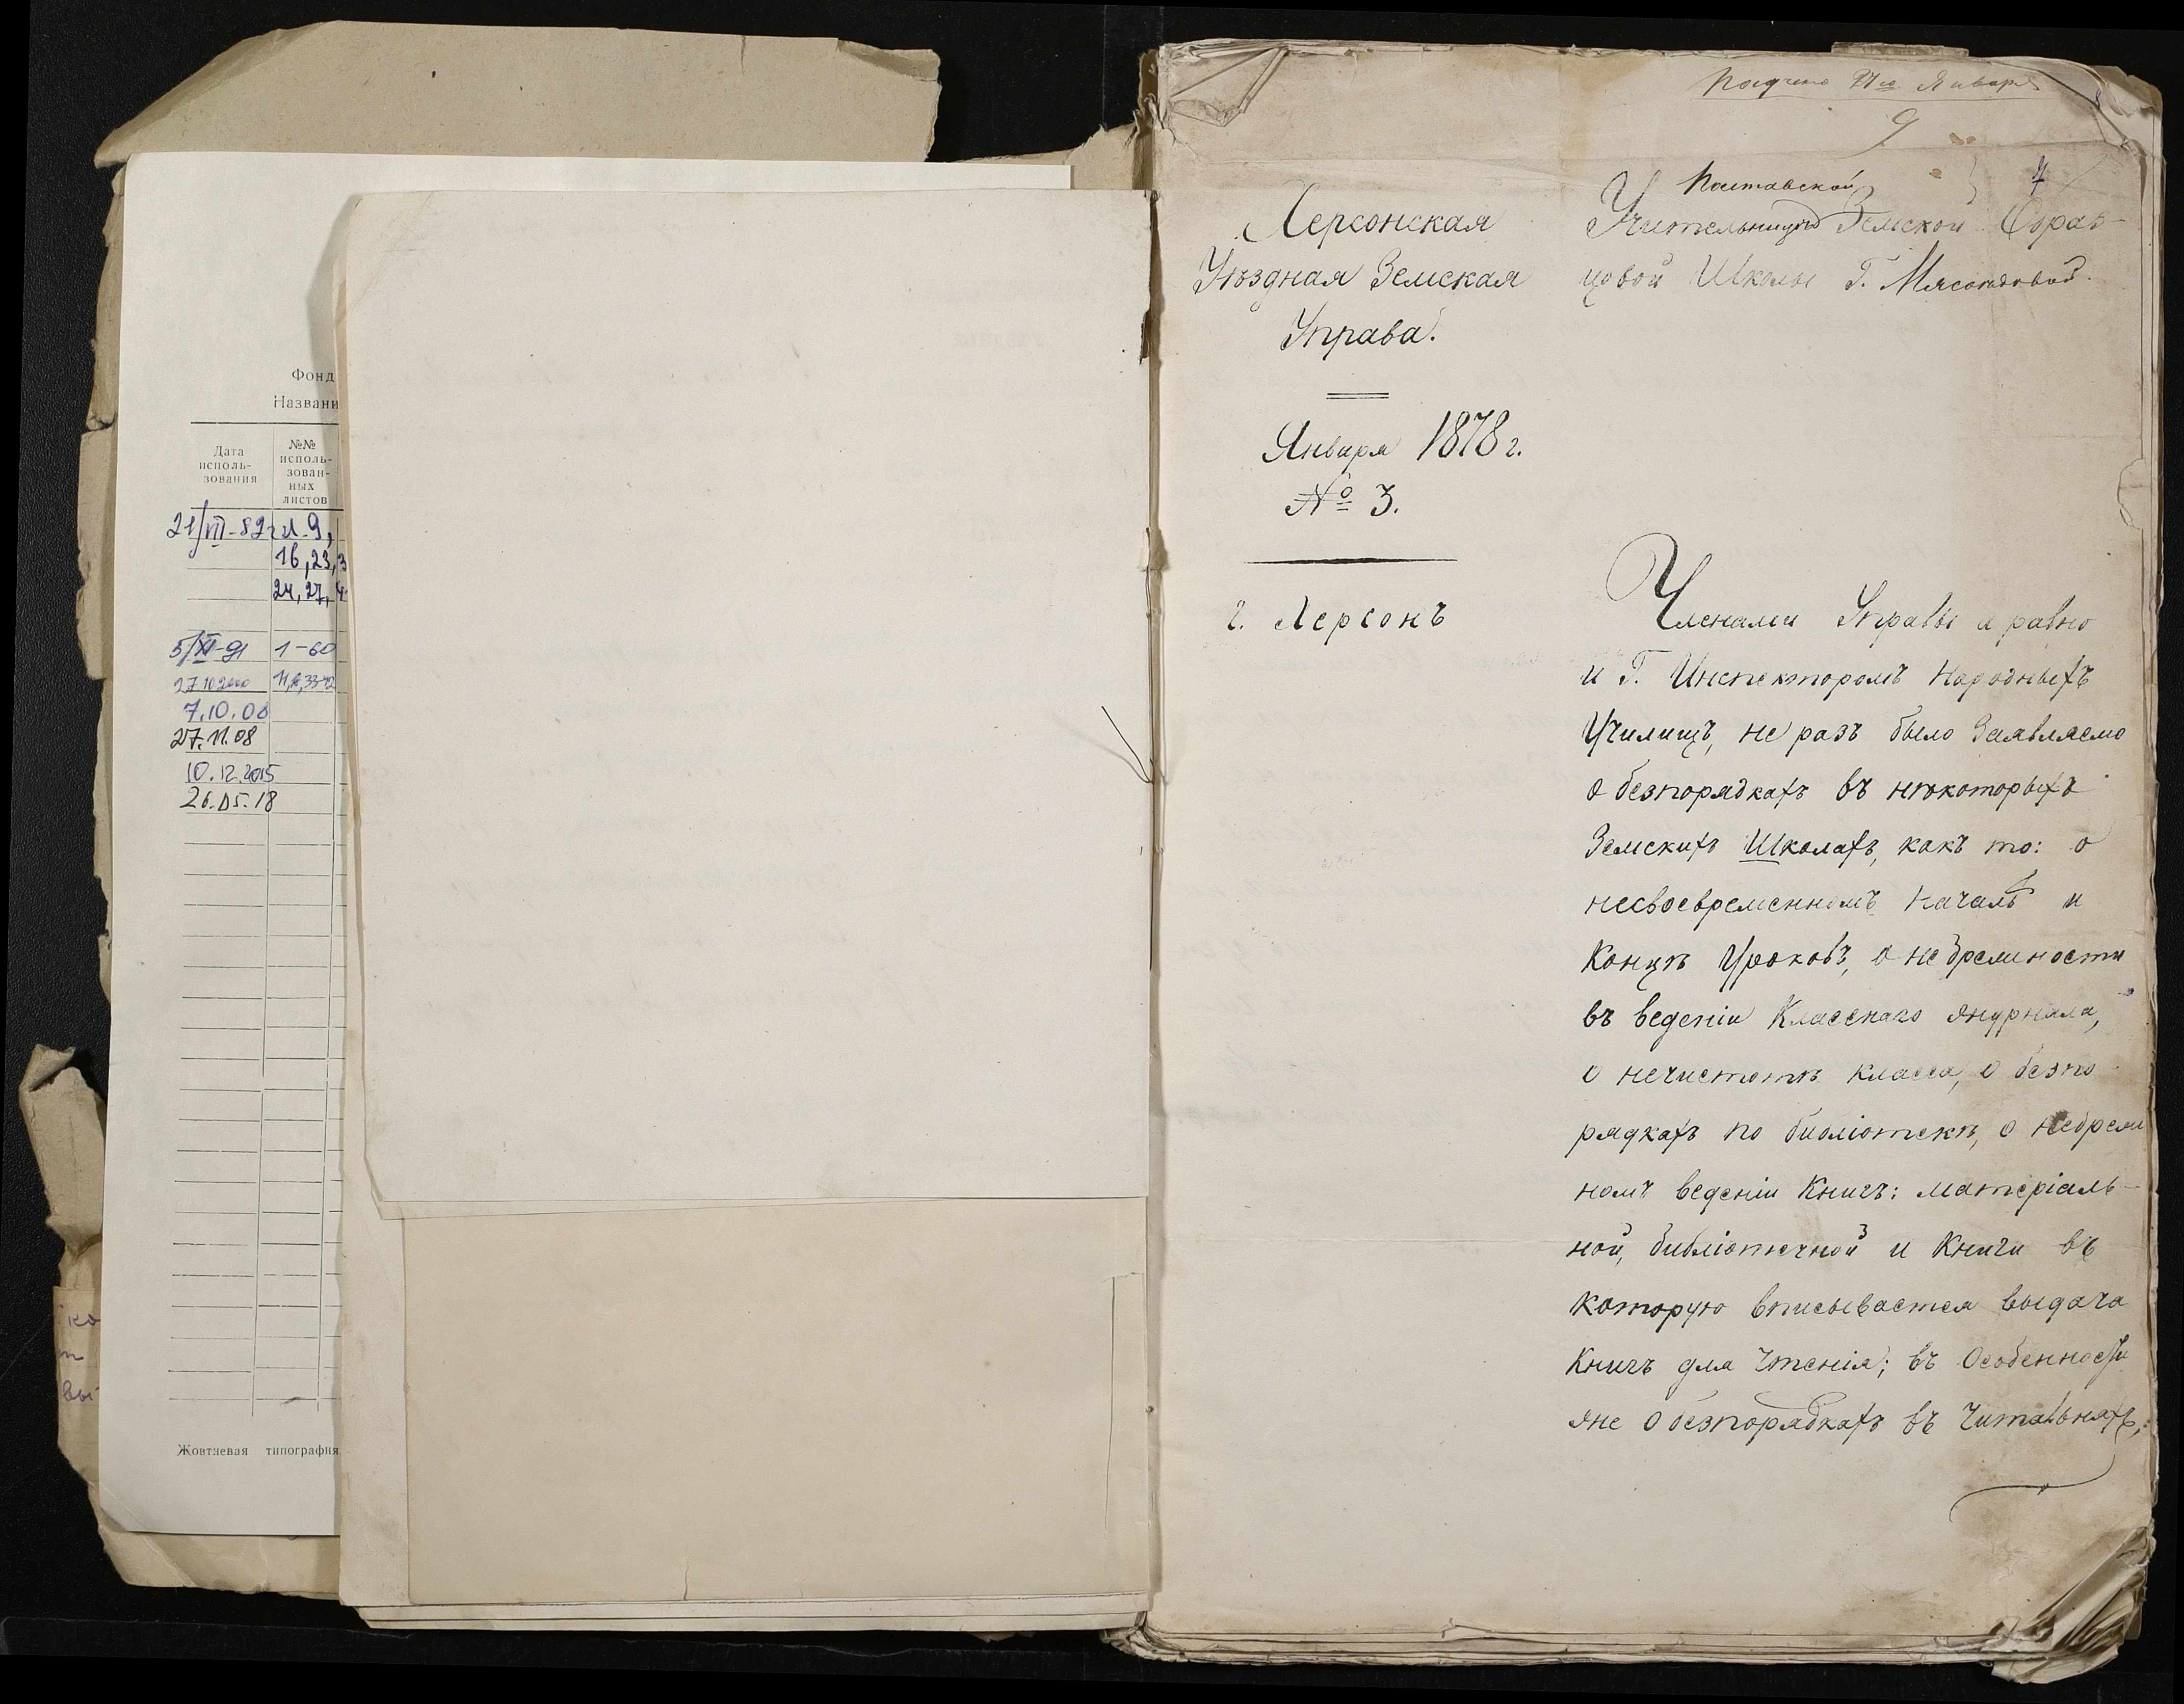 Фонд
Названи
Дата исполь-зования
№№ исполь-зован-ных листов
21/VII-82г л.9,
16,23,3
24,27,4
5/XI-91 1-60
27.10.2000
7.10.08
27.11.08
10.12.2015
26.05.18
Жовтневая типография
ко
вы
Января
9
7
Херсонская
Уѣздная Земская
Управа.
Января 1878 г.
№ 3.
г. Херсонъ
Полтавской
Учительницѣ Земской Образ-
цовой Школы Г. Мясоѣдовой.
Членами Управы а равно
и Г. Инспекторомъ Народныхъ
Училищъ, не разъ было Заявляемо
о безпорядкахъ въ нѣкоторыхъ
Земскихъ Школахъ, какъ то: о
несвоевременномъ началѣ и
Концѣ Уроковъ, о небрежности
въ веденіи Класснаго журнала,
о нечистотѣ класса, о безпо
рядкахъ по библіотекѣ, о небреж
номъ веденіи Книгъ: матеріаль-
ной, библіотечной и Книги въ
которую вписывается выдача
Книгъ для Чтенія; въ Особенности
же о безпорядкахъ въ Читальняхъ;